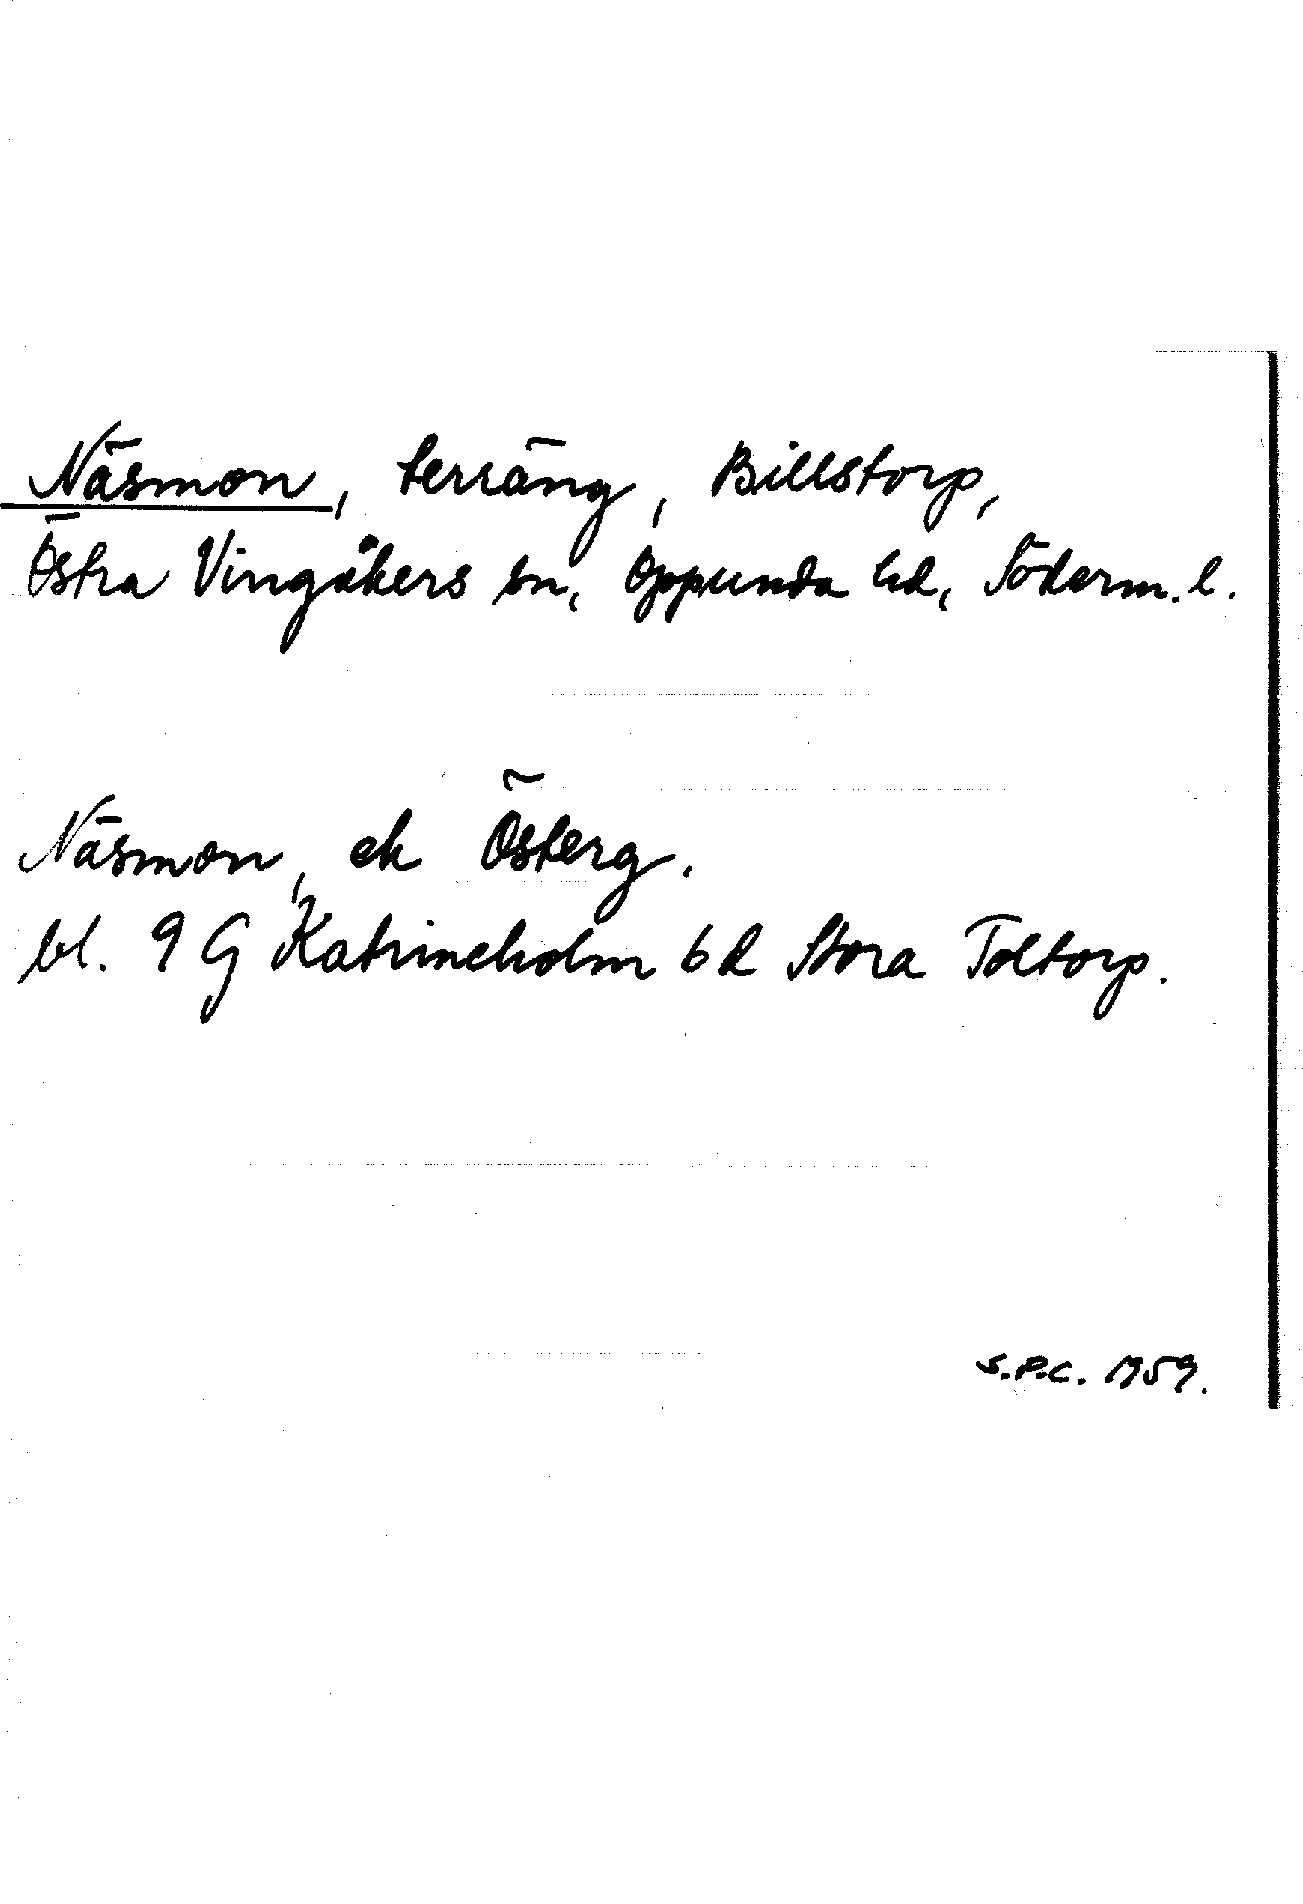 Näsmon, terräng, Billstorp,
Östra Vingåkers sn, Oppunda hd, Söderm. l.
Näsmon, ek Österg.
bl. 9 G Katrineholm 6d Stora Toltorp.
S.P.C. 1959.